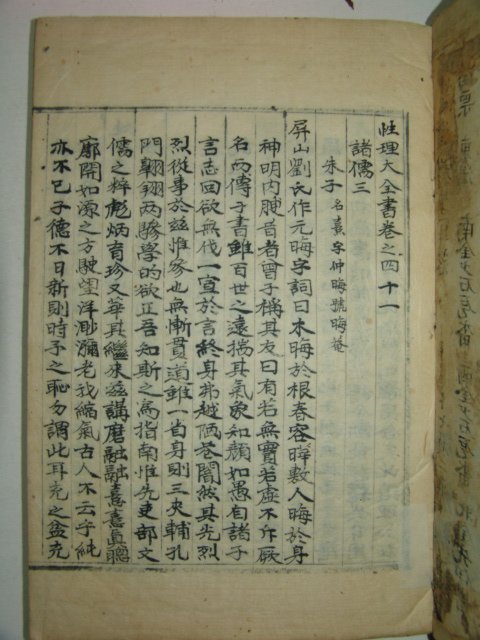 性理大全書卷之四十一
諸儒三
朱子 名熹字仲晦號晦菴
屛山劉氏作元晦字詞曰木晦於根春容曄敷人晦於身
神明內腴昔者曾子稱其友曰有若無實若虛不斥厥
名而傳于書雖百世之遠揣其氣象知顔如愚自諸子
言志回欲無伐一宣於言終身弗越陋巷闇然其光烈
烈從事於玆惟參也無慚貫道雖一省身則三夾輔孔
門翶翔兩驂學的欲正吾知斯之爲指南惟先吏部文
儒之粹彪炳育珍又華其繼來玆講磨融融熹熹眞聰
廓開如源之方駛望洋渺瀰老我縮氣古人不云乎純
亦不已子德不日新則時予之恥勿謂此耳充之益充